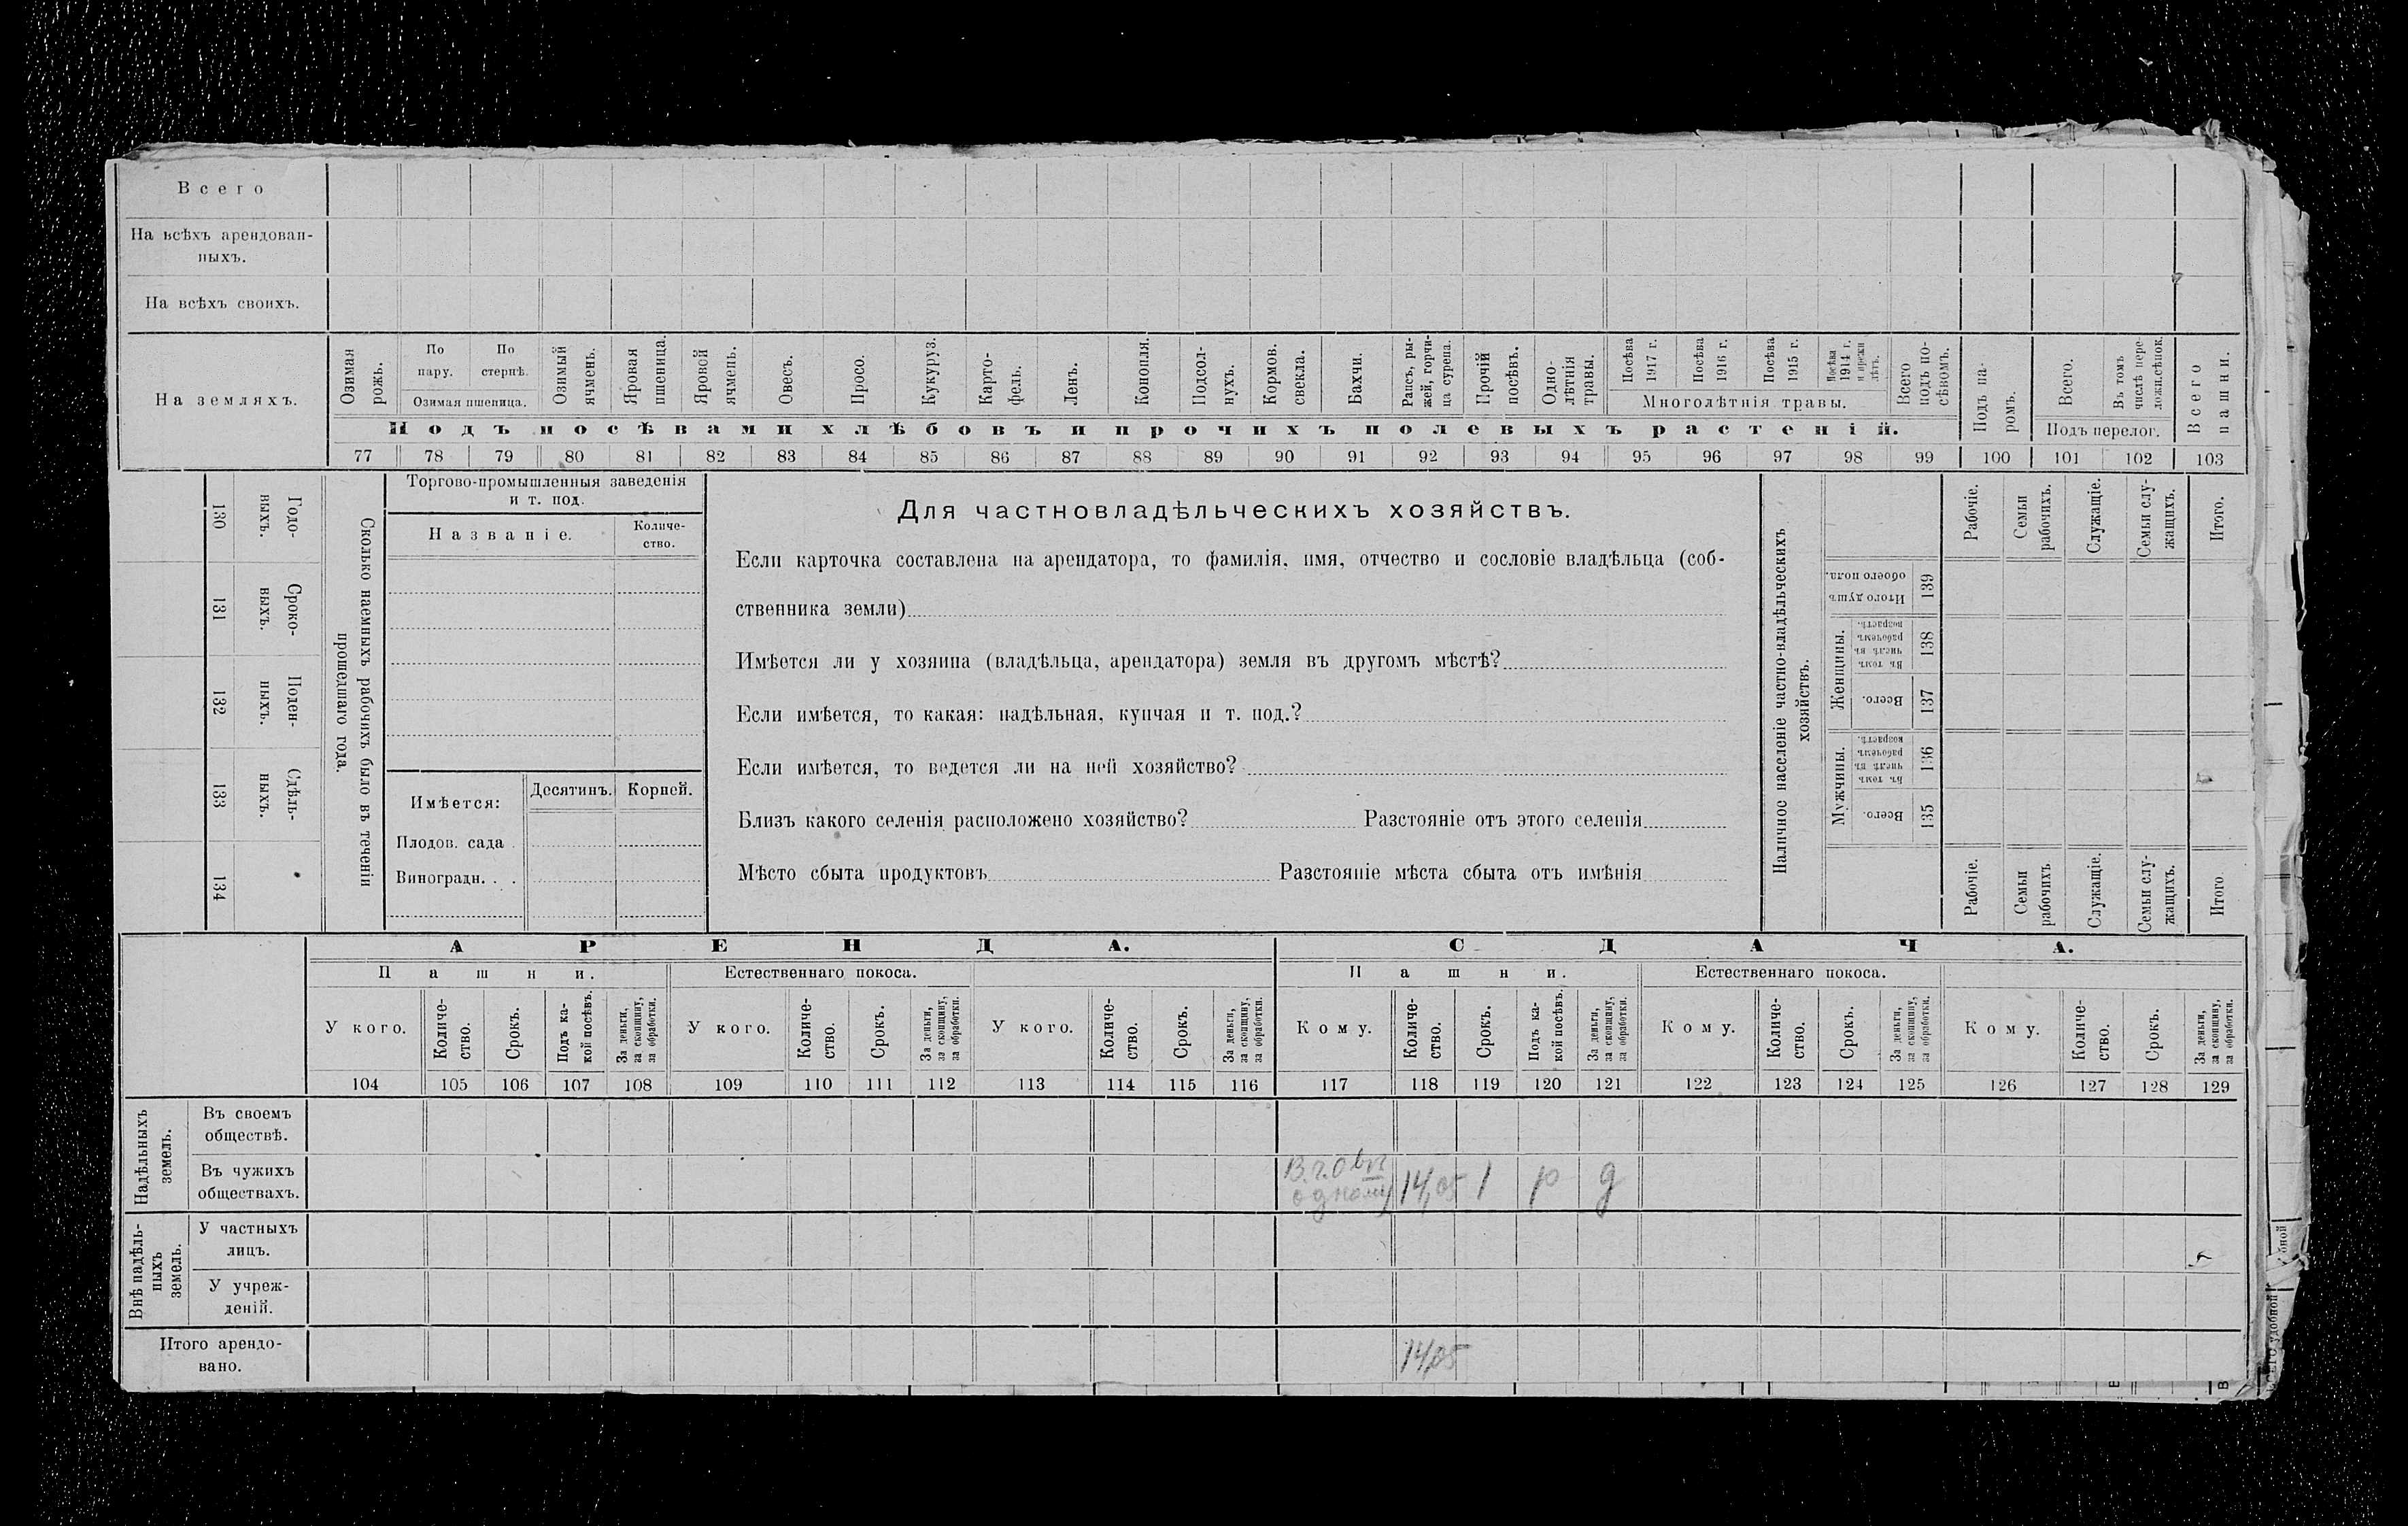 Всего
На всѣхъ арендован-
ныхъ.
На всѣхъ своихъ.
На земляхъ.
Озимая рожь.
По пару.
По стернѣ.
Озимая пшеница.
Озимый ячмень.
Яровая пшеница.
Яровой ячмень.
Овесъ.
Просо.
Кукуруз.
Карто-
фель.
Ленъ.
Конопля.
Подсол-
нухъ.
Кормов. свекла.
Бахчи.
Рапсъ, ры-
жей, горчи-
ца сурепа.
Прочій посѣвъ.
Одно-
лѣтнія
травы.
Посѣва 1917 г.
Посѣва 1916 г.
Посѣва 1915 г.
Посѣва 1914 г. и прежн. лѣтъ.
Многолѣтнія травы.
Всего подъ по-
сѣвомъ.
Подъ па-
ромъ.
Всего.
Въ томъ числѣ пере-
Подъ перелог.
Всего пашни.
Подъ посѣвами хлѣбовъ и прочихъ полевыхъ растеній.
77 78 79 80 81 82 83 84 85 86 87 88 89 90 91 92 93 94 95 96 97 98 99 100 101 102 103
130 Годо-
выхъ.
131 Сроко-
выхъ.
132 Поден-
ныхъ.
133 Сдѣль-
ныхъ.
134
Сколько наемныхъ рабочихъ было въ теченіи
прошедшаго года.
Торгово-промышленныя заведенія
и т. под.
Названіе.
Количе-
ство.
Имѣется:
Десятинъ.
Корней.
Плодов. сада .
Виноградн. . .
Для частновладѣльческихъ хозяйствъ.
Если карточка составлена на арендатора, то фамилія, имя, отчество и сословіе владѣльца (соб-
ственника земли)
Имѣется ли у хозяина (владѣльца, арендатора) земля въ другомъ мѣстѣ?
Если имѣется, то какая: надѣльная, купчая и т. под.?
Если имѣется, то ведется ли на ней хозяйство?
Близъ какого селенія расположено хозяйство? Разстояніе отъ этого селенія
Мѣсто сбыта продуктовъ Разстояніе мѣста сбыта отъ имѣнія
Наличное населеніе частно-владѣльческихъ
хозяйствъ.
Рабочіе.
Семьи рабочихъ.
Служащіе.
Семьи слу-
жащихъ.
Итого.
Итого душъ обоего пола. 139
Женщины.
Въ томъ числѣ въ рабочемъ возрастѣ. 138
Всего. 137
Мужчины.
Въ томъ числѣ въ рабочемъ возрастѣ. 136
Всего. 135
Рабочіе.
Семьи рабочихъ
Служащіе.
Семьи слу-
жащихъ.
Итого
АРЕНДА.
СДАЧА.
Пашни.
Естественнаго покоса.
Пашни.
Естественнаго покоса.
У кого.
Количе-
ство.
Срокъ.
Подъ ка-
кой посѣвъ.
За деньги, за скопщину, за обработки.
У кого.
Количе-
ство.
Срокъ.
За деньги, за скопщину, за обработки.
У кого.
Количе-
ство.
Срокъ.
За деньги, за скопщину, за обработки.
Кому.
Количе-
ство.
Срокъ.
Подъ ка-
кой посѣвъ.
За деньги, за скопщину, за обработки.
Кому.
Количе-
ство.
Срокъ.
За деньги, за скопщину, за обработки.
Кому.
Количе-
ство.
Срокъ.
За деньги, за скопщину, за обработки.
104 105 106 107 108 109 110 111 112 113 114 115 116 117 118 119 120 121 122 123 124 125 126 127 128 129
Надѣльныхъ
земель.
Въ своемъ
обществѣ.
Въ чужихъ
обществахъ.
одному 14,05 1 р д
Внѣ надѣль-
ныхъ
земель.
У частныхъ
лицъ.
У учреж-
деній.
Итого арендо-
вано.
14,05